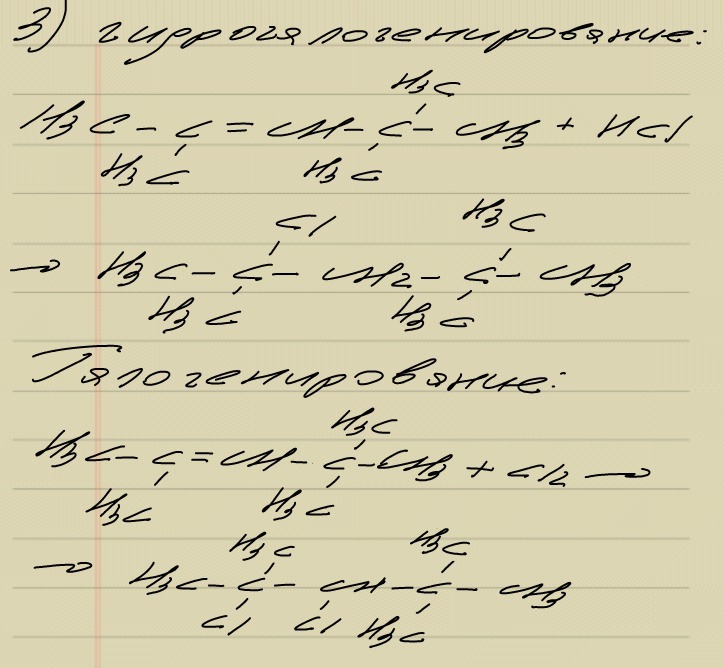 3) гидрогалогенирование:
H3C
H3C - C = CH - C - CH3 + HCl
H3C H3C
Cl H3C
→ H3C - C - CH2 - C - CH3
H3C H3C
Галогенирование:
H3C
H3C - C = CH - C - CH3 + Cl2 →
H3C H3C
H3C H3C
→ H3C - C - CH - C - CH3
Cl Cl H3C